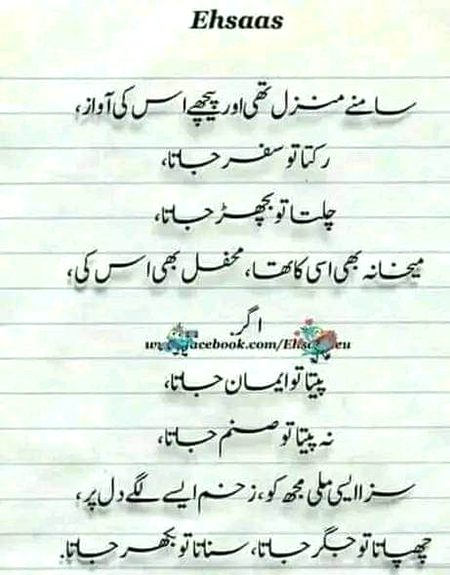 Ehsaas
سامنے منزل تھی اور پیچھے اس کی آواز،
رکتا تو سفر جاتا،
چلتا تو بچھڑ جاتا،
میخانہ بھی اسی کا تھا، محفل بھی اس کی،
اگر
facebook.com/Ehs
پیتا تو ایمان جاتا،
نہ پیتا تو صنم جاتا،
سزا ایسی ملی مجھ کو، زخم ایسے لگے دل پر،
چھپاتا تو جگر جاتا، سناتا تو بکھر جاتا.